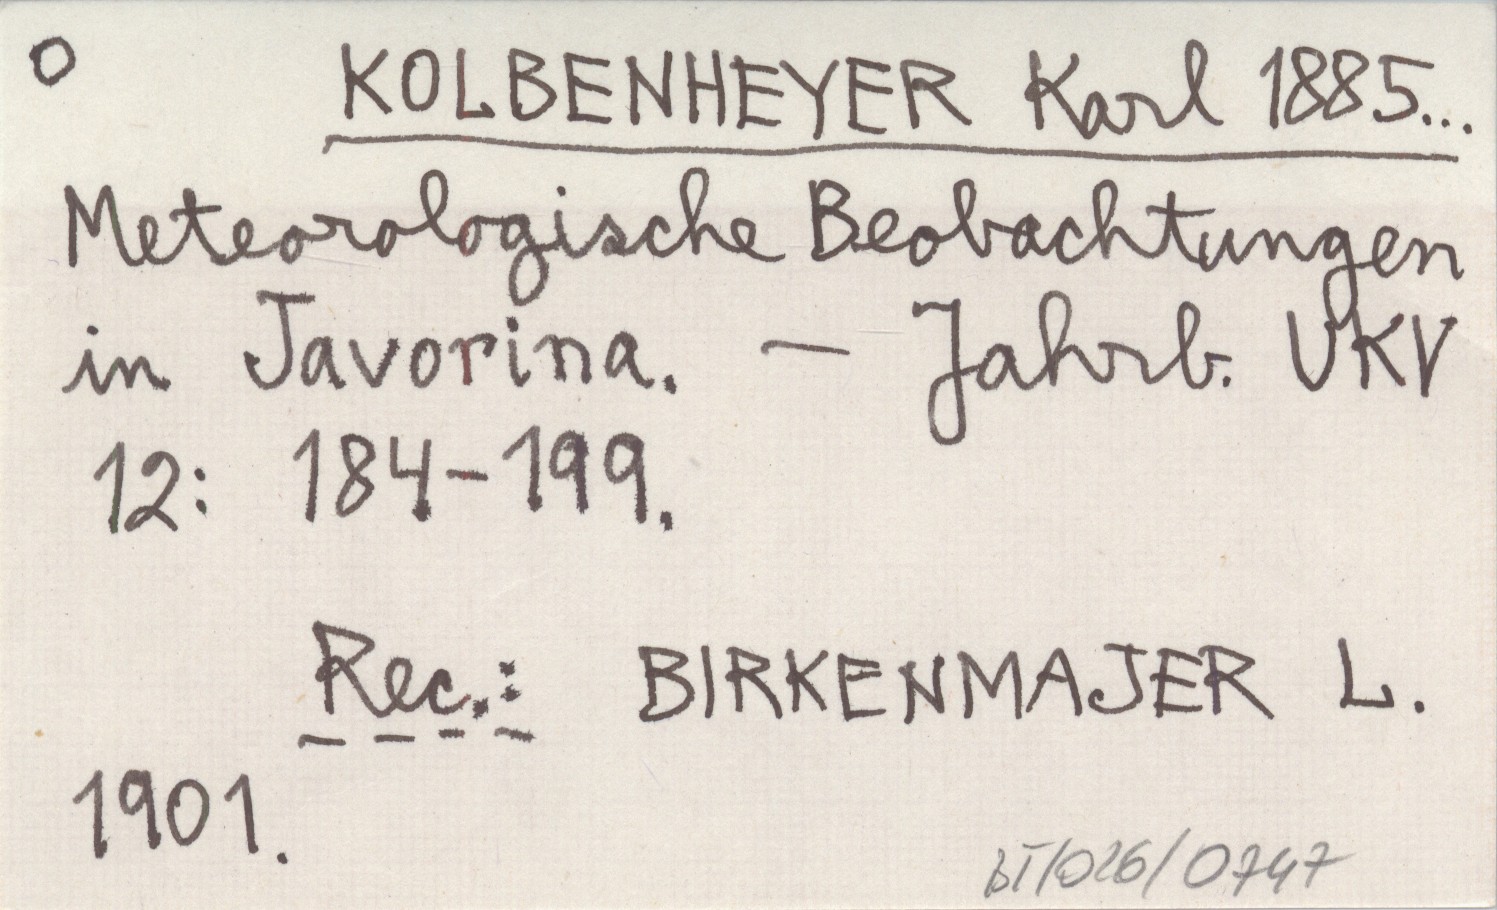 O KOLBENHEYER Karl 1885...
Meteorologische Beobachtungen
in Javorina. — Jahrb. UKV
12: 184-199.
Rec.: BIRKENMAJER L.
1901.
bT/026/0747